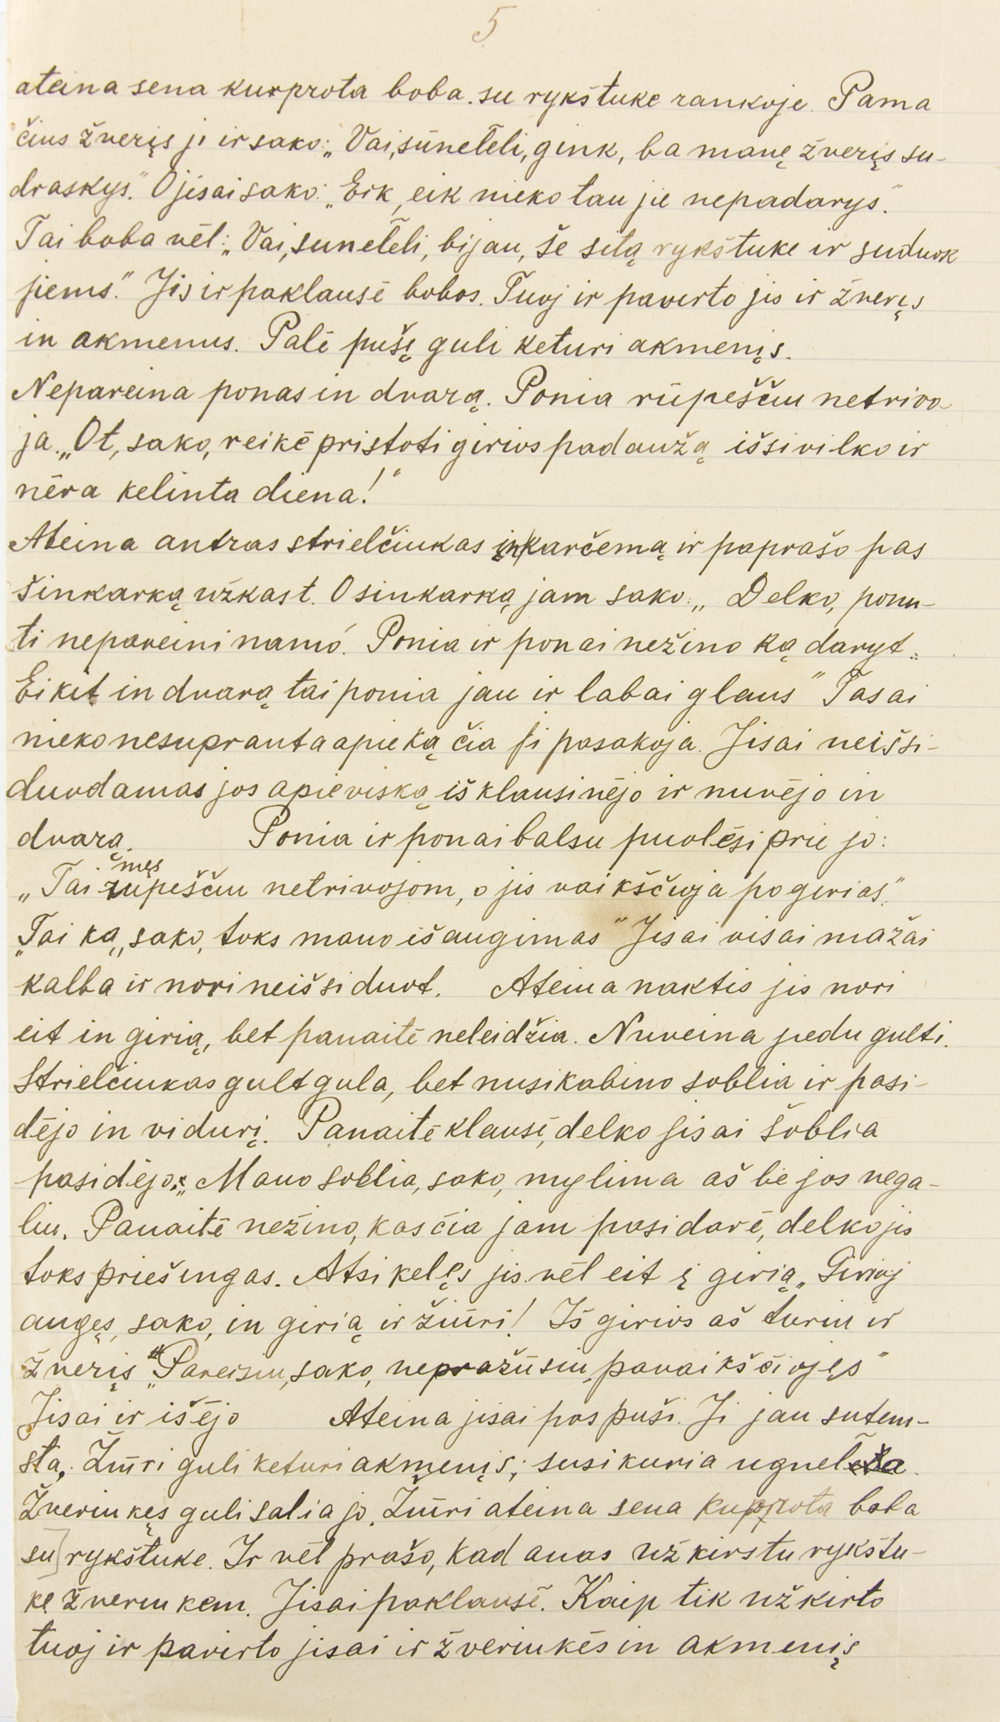 5
ateina sena kurprota boba su rykštuke rankoje. Pama
čius žverįs ji ir sako: „Vai, sūneteli, gink, ba manę žverįs su-
draskys." O jisai sako: „Eik, eik nieko tau jie nepadarys."
Tai boba vėl: „Vai, suneteli, bijau, še šitą rykštuke ir suduok
jiems." Jis ir paklausė bobos. Tuoj ir pavirto jis ir žverįs
in akmenus. Palē pušį guli keturi akmenįs.
Nepareina ponas in dvarą. Ponia rūpeščiu netrivo
ja. „Ot, sako, reikė pristoti girios padaužą išsivilko ir
nėra kelinta diena!"
Ateina antras strielčiukas in karčemą ir paprašo pas
šinkarką užkast. O sinkarką jam sako: „Delko, ponu-
ti nepareini namo. Ponia ir ponai nežino ką daryt.
Eikit in dvarą tai ponia jau ir labai glaus" Tasai
nieko nesupranta apie ką čia ji pasakoja. Jisai neišsi-
duodamas jos apie viską išklausinėjo ir nuvėjo in
dvarą. Ponia ir ponai balsu puolėsi prie jo:
„Tai mes rūpeščiu netrivojom, o jis vaikščioja po girias."
„Tai ką, sako, toks mano išaugimas" Jisai visai mažai
kalba ir nori neišsiduot. Ateina naktis jis nori
eit in girią, bet panaitė neleidžia. Nuveina jiedu gulti.
Strielčiukas gult gula, bet nusikabino soblia ir pasi-
dėjo in vidurį. Panaitė klausė, delko jisai šoblia
pasidėjo: „Mano soblia, sako, mylima aš be jos nega-
liu. Panaitė nežino, kas čia jam pasidarė, delko jis
toks priešingas. Atsikelęs jis vėl eit į girią „Girioj
augęs, sako, in girią ir žiūri! Iš girios aš turiu ir
žverįs" „Pareisiu, sako, nepražūsiu, pavaikščiojęs"
Jisai ir išėjo Ateina jisai pas puši. Ji jau sutem-
sta. Žiūri guli keturi akmenįs; susikuria ugnelę
Žveriukęs guli salia jo. Žiūri ateina sena kuprota boba
su rykštuke. Ir vėl prašo, kad anas užkirstu rykštu-
ke žveriukem. Jisai paklausė. Kaip tik užkirto
tuoj ir pavirto jisai ir žveriukės in akmenįs